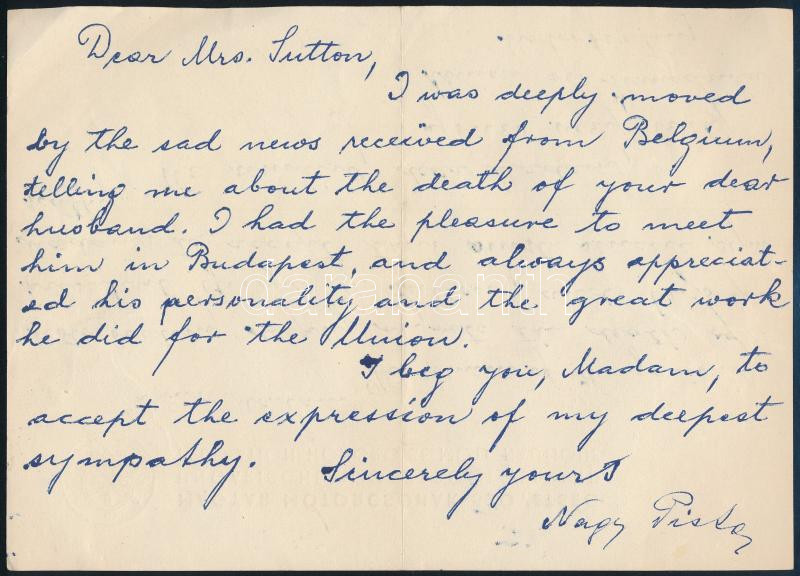 Dear Mrs. Sutton,
I was deeply moved
by the sad news received from Belgium,
telling me about the death of your dear
husband. I had the pleasure to meet
him in Budapest, and always appreciat-
ed his personality and the great work
he did for the Union.
I beg you, Madam, to
accept the expression of my deepest
sympathy. Sincerely yours
Nagy Pista